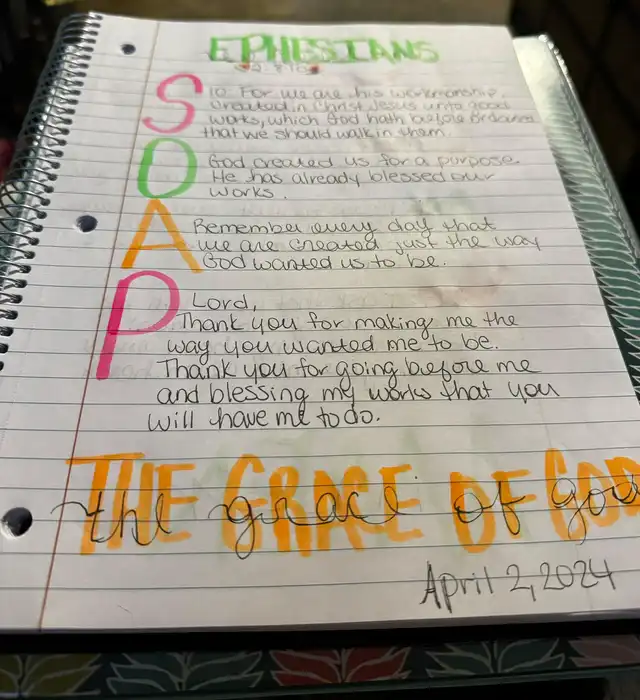 EPHESIANS
2:8-10
S 10 For we are his workmanship,
created in Christ Jesus unto good
works, which God hath before ordained
that we should walk in them.
O God created us for a purpose.
He has already blessed our
works.
A Remember every day that
we are created just the way
God wanted us to be.
P Lord,
Thank you for making me the
way you wanted me to be.
Thank you for going before me
and blessing my works that you
will have me to do.
THE GRACE OF GOD
the grace of god
April 2, 2024